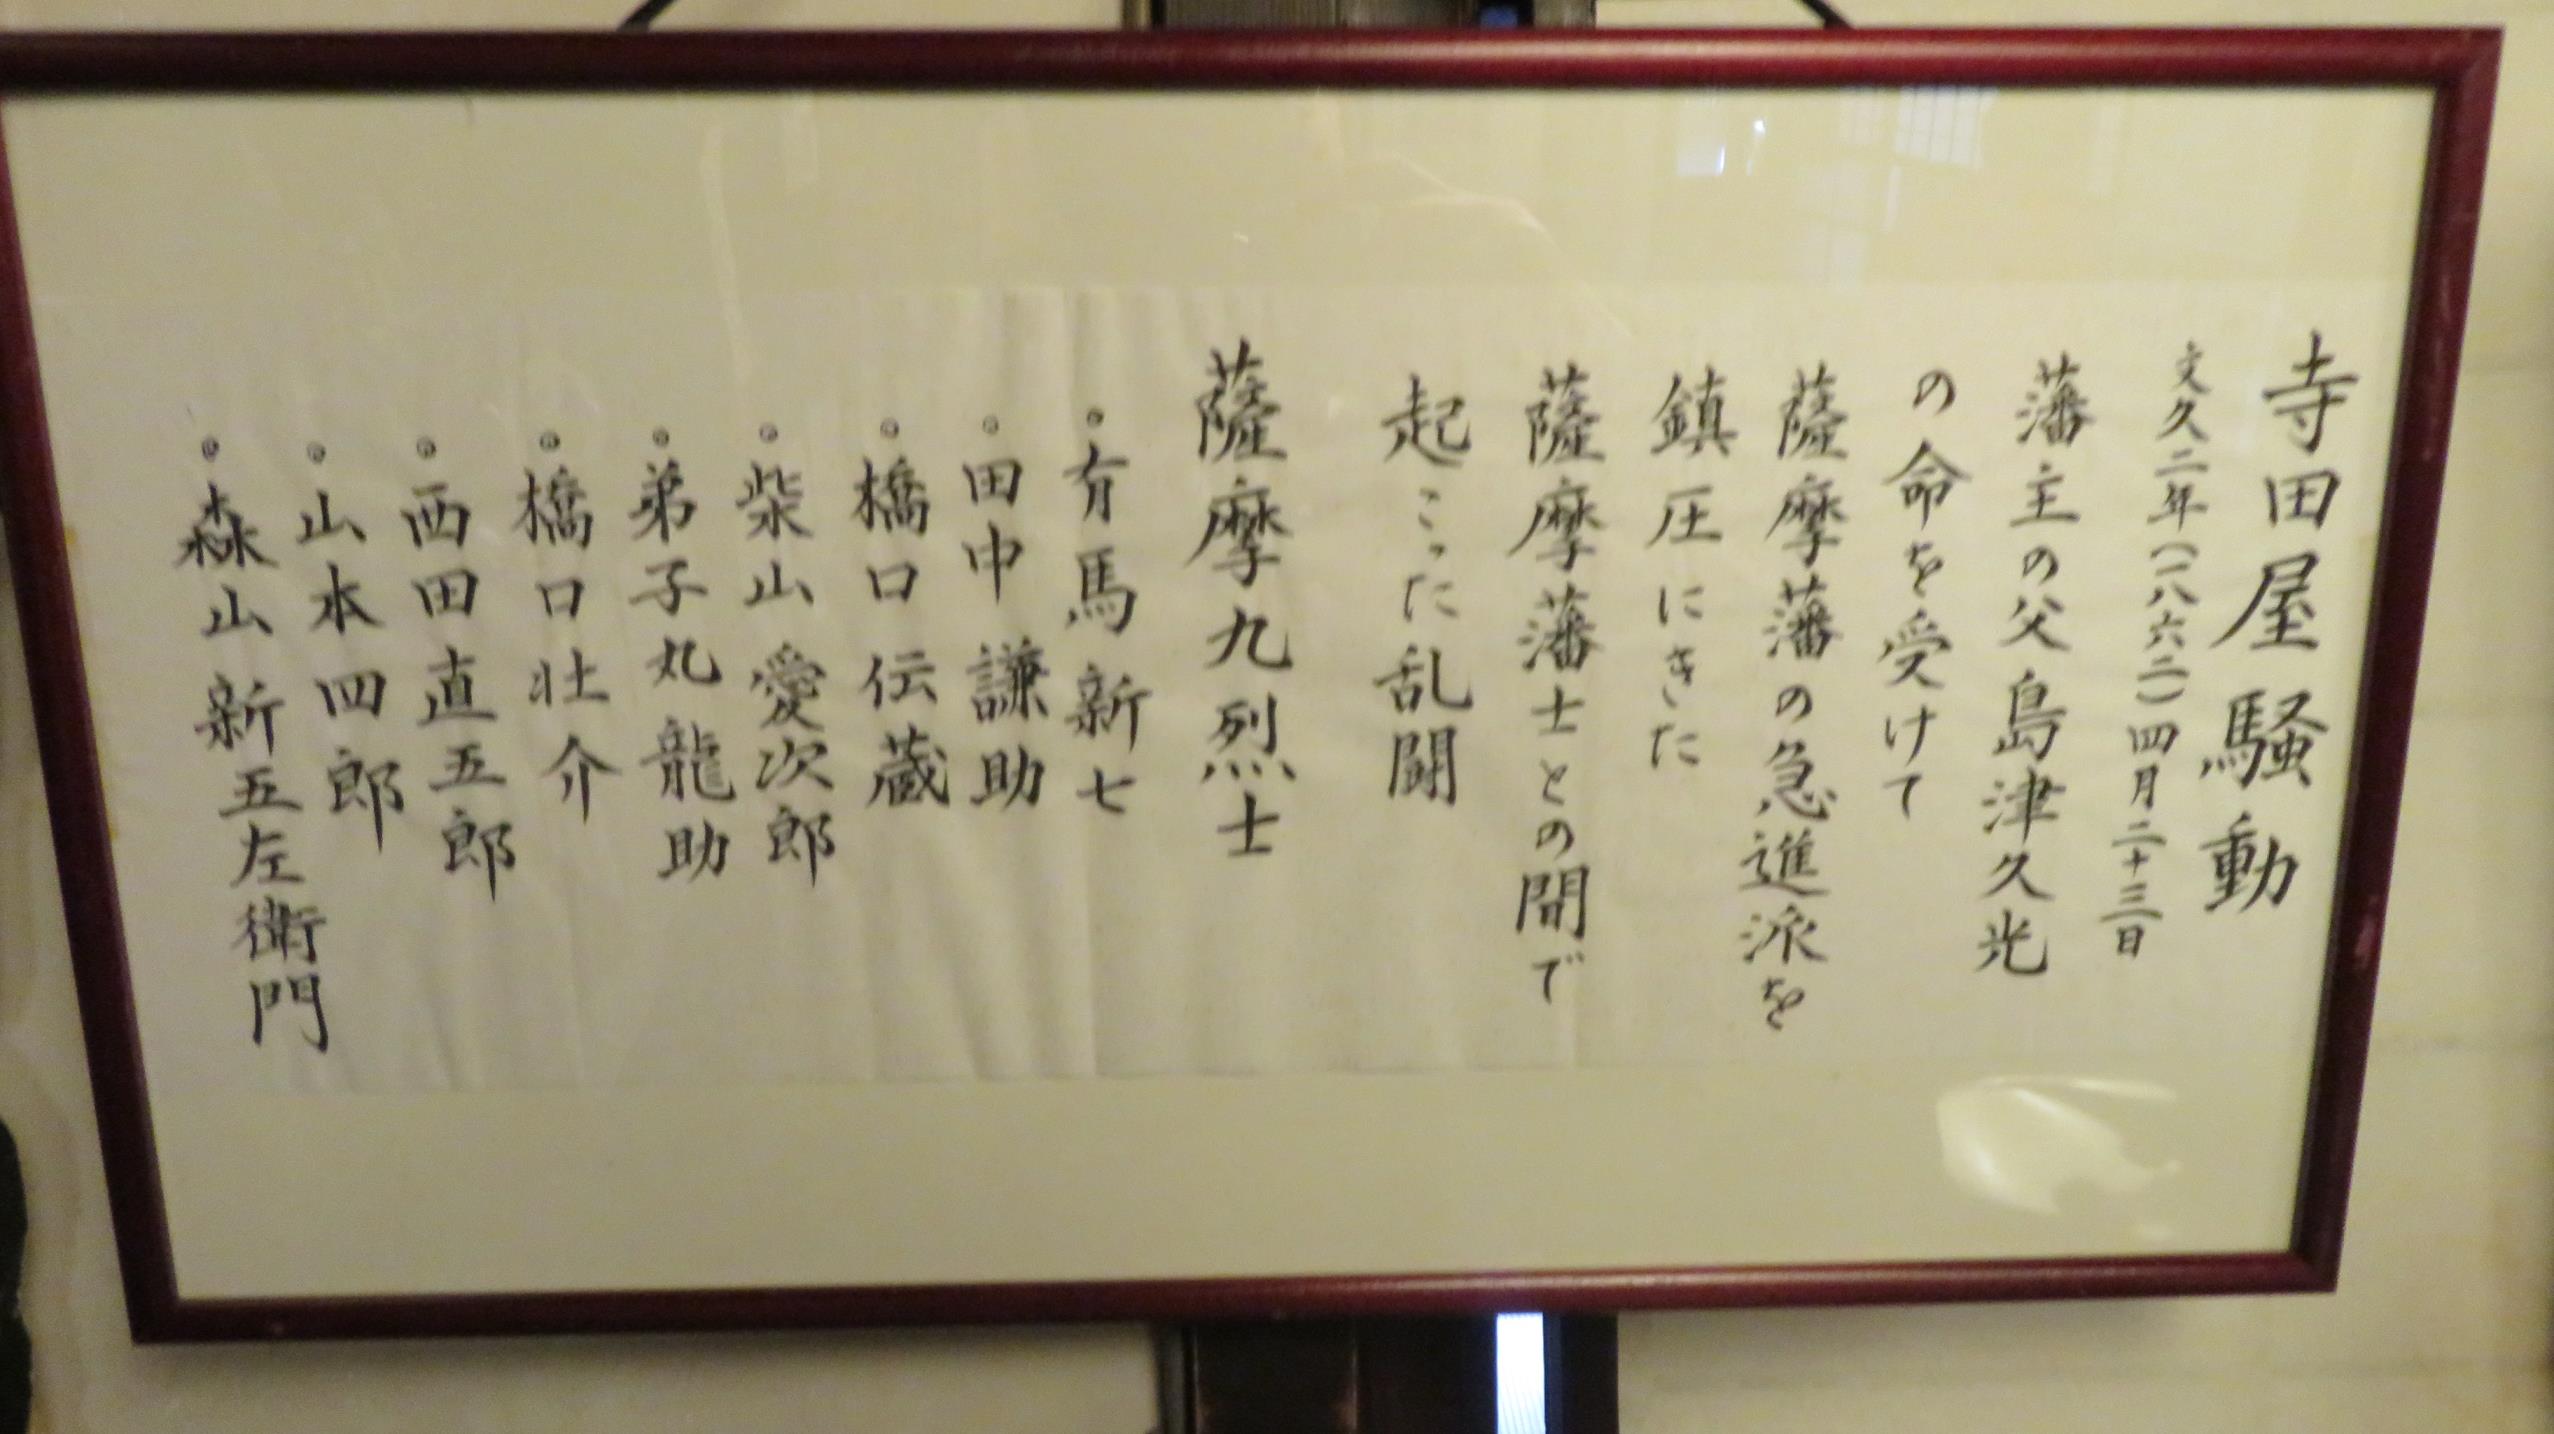 寺田屋騒動
文久二年(一八六二)四月二十三日
藩主の父島津久光
の命を受けて
薩摩藩の急進派を
鎮圧にきた
薩摩藩士との間で
起こった乱闘
薩摩九烈士
・有馬新七
・田中謙助
・橋口伝蔵
・柴山愛次郎
・弟子丸龍助
・橋口壮介
・西田直五郎
・山本四郎
・森山新五左衛門